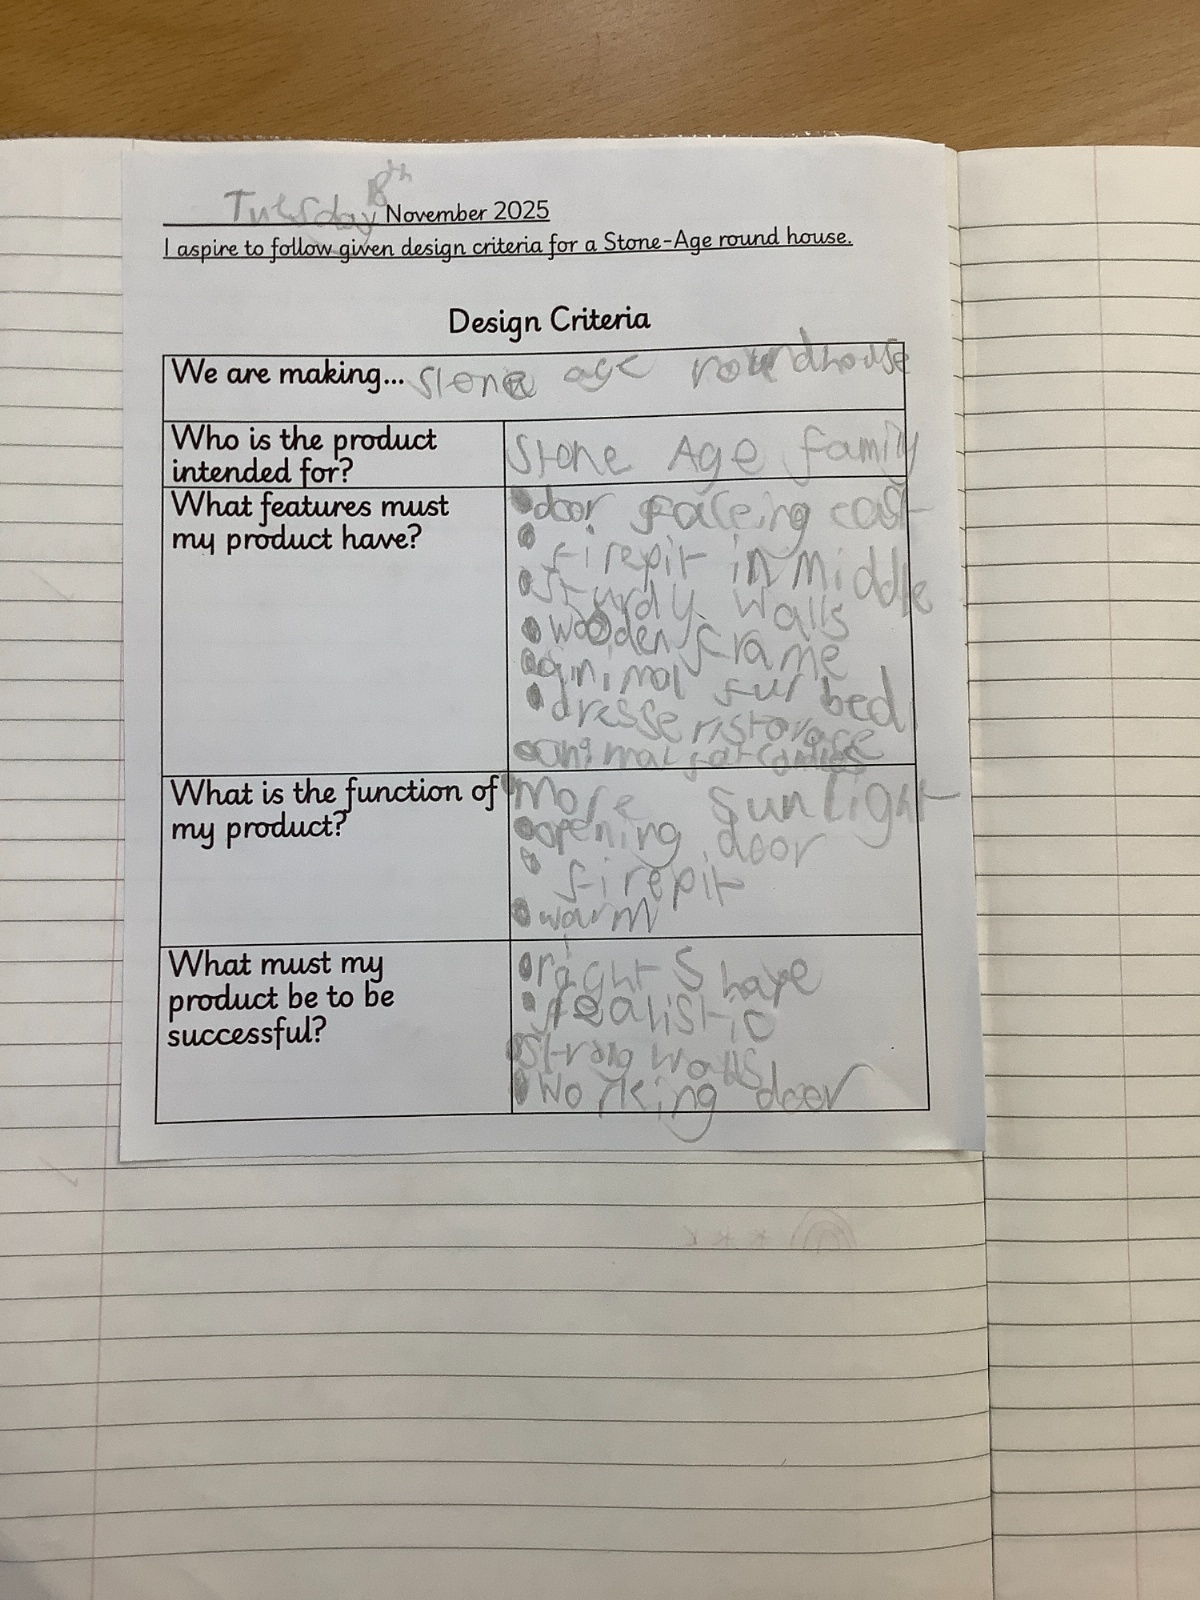 Tuesday 8th November 2025
I aspire to follow given design criteria for a Stone-Age round house.
Design Criteria
We are making... stone age roundhouse
Who is the product
intended for?
Stone Age family
What features must
my product have?
door faceing east
firepit in middle
sturdy walls
wooden frame
animal fur bed
dresser storage
animal fat candles
What is the function of
my product?
more sunlight
opening door
firepit
warm
What must my
product be to be
successful?
right shape
realistic
strong walls
working door